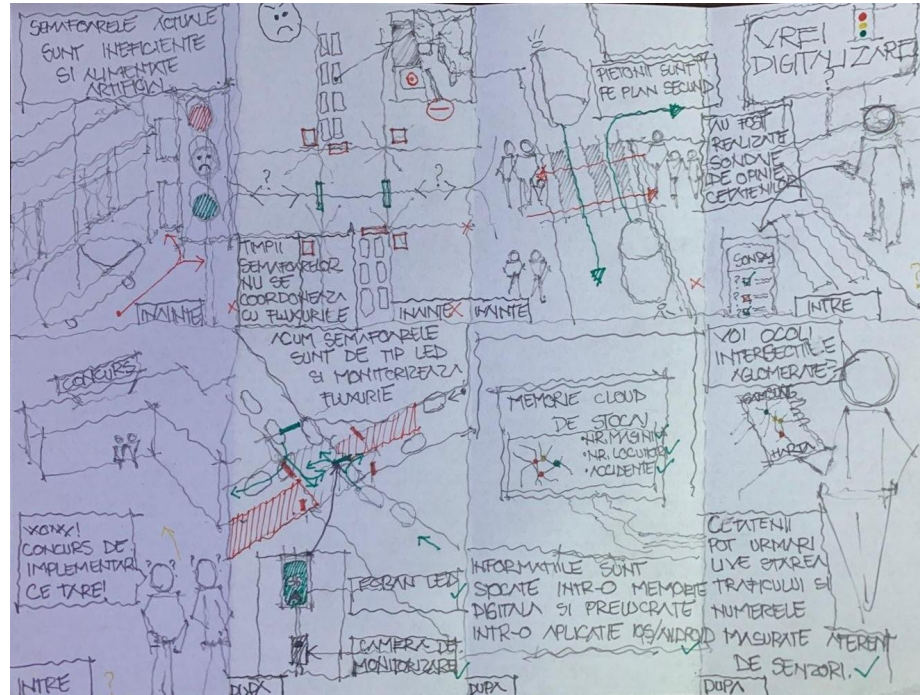 SEMAFOARELE ACTUALE
SUNT INEFICIENTE
SI ALIMENTATE
ARTIFICIAL
INAINTE
?
?
TIMPII
SEMAFOARELOR
NU SE
COORDONEAZA
CU FLUXURILE
INAINTE
PIETONII SUNT
PE PLAN SECUND
INAINTE
VREI
DIGITALIZARE
?
AU FOST
REALIZATE
SONDAJE
DE OPINIE
CETATENILOR
SONDAJ
INTRE
CONCURS
CONCURS DE
IMPLEMENTARE
CE TARE!
INTRE
ACUM SEMAFOARELE
SUNT DE TIP LED
SI MONITORIZEAZA
FLUXURILE
ECRAN LED
CAMERA DE
MONITORIZARE
DUPA
MEMORIE CLOUD
DE STOCAJ
•NR. MASINI
•NR. LOCUITORI
•ACCIDENTE
INFORMATIILE SUNT
STOCATE INTR-O MEMORIE
DIGITALA SI PRELUCRATE
INTR-O APLICATIE IOS/ANDROID
DUPA
VOI OCOLI
INTERSECTIILE
AGLOMERATE
SAMSUNG
HARTA
CETATENII
POT URMARI
LIVE STAREA
TRAFICULUI SI
NUMERELE
MASURATE AFERENT
DE SENZORI.
DUPA